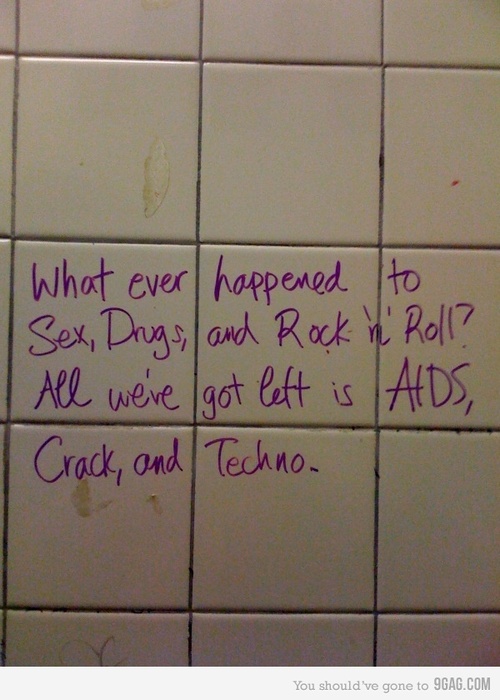 What ever happened to
Sex, Drugs, and Rock 'n' Roll?
All we've got left is AIDS,
Crack, and Techno.
You should've gone to 9GAG.COM